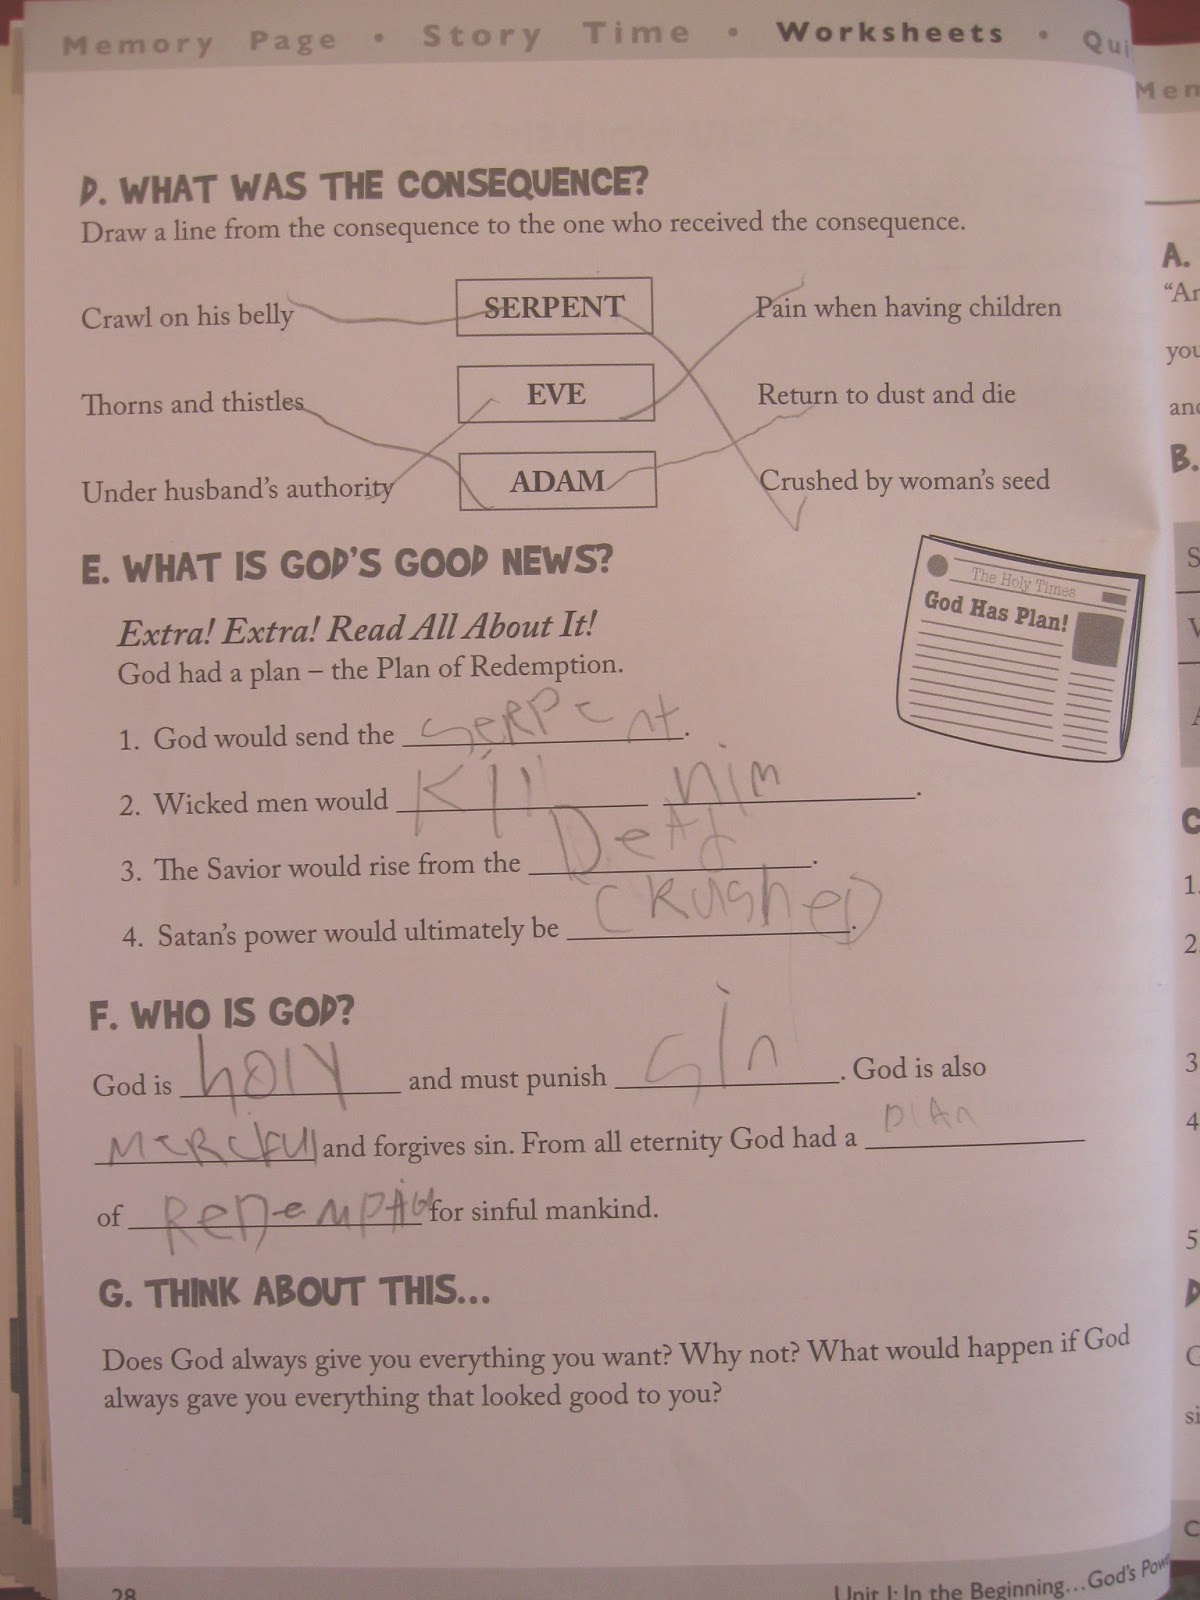 Memory Page • Story Time • Worksheets • Qui
Mem
D. WHAT WAS THE CONSEQUENCE?
Draw a line from the consequence to the one who received the consequence.
Crawl on his belly SERPENT Pain when having children
Thorns and thistles EVE Return to dust and die
Under husband's authority ADAM Crushed by woman's seed
E. WHAT IS GOD'S GOOD NEWS?
The Holy Times
God Has Plan!
Extra! Extra! Read All About It!
God had a plan – the Plan of Redemption.
1. God would send the SeRPent.
2. Wicked men would Kill him.
3. The Savior would rise from the DeAd.
4. Satan's power would ultimately be CRusheD.
F. WHO IS GOD?
God is holy and must punish Sin. God is also
MeRciful and forgives sin. From all eternity God had a plAn
of ReDemption for sinful mankind.
G. THINK ABOUT THIS...
Does God always give you everything you want? Why not? What would happen if God
always gave you everything that looked good to you?
28
Unit I: In the Beginning…God's Pow
A.
"Ar
you
and
B.
S
V
A
C
1.
2
3
4
5
D
C
si
C